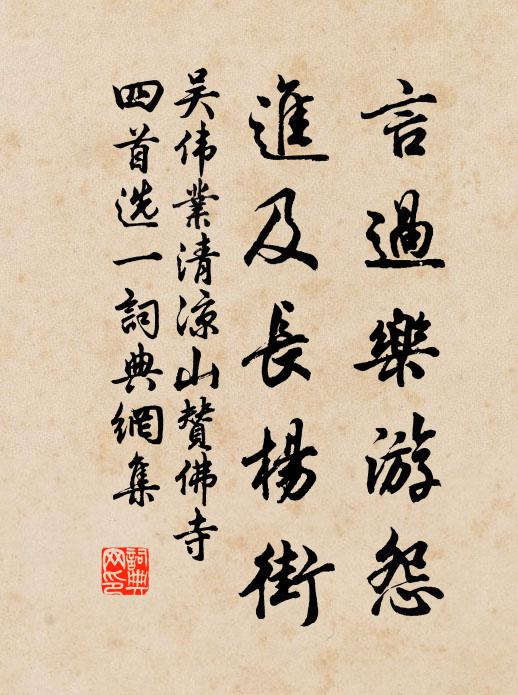 言過樂游怨
進及長楊街
吴伟業清涼山贊佛寺
四首选一詞典網集
詞典
网印